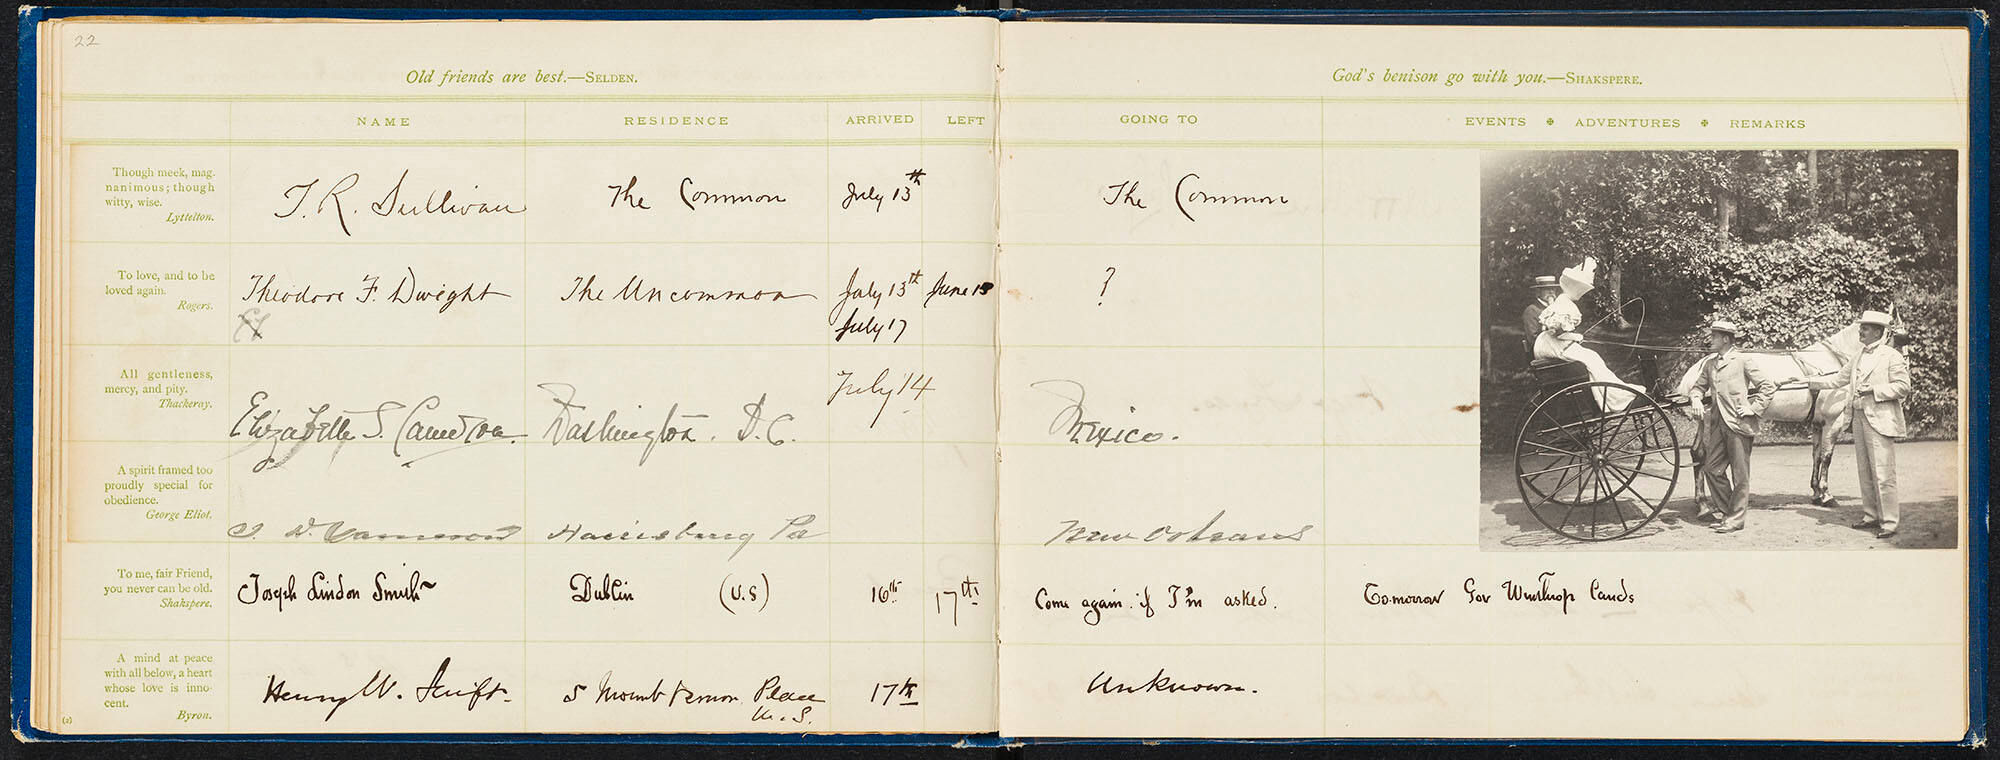 22
Old friends are best.—SELDEN.
God's benison go with you.—SHAKSPERE.
NAME RESIDENCE ARRIVED LEFT
GOING TO EVENTS ✠ ADVENTURES ✠ REMARKS
Though meek, mag-
nanimous; though
witty, wise.
Lyttelton.
T. R. Sullivan The Common July 13th The Common
To love, and to be
loved again.
Rogers.
Theodore F. Dwight The Uncommon July 13th June 15 ?
July 17
All gentleness,
mercy, and pity.
Thackeray.
July 14
Elizabeth S. Cameron. Washington. D.C. Mexico.
A spirit framed too
proudly special for
obedience.
George Eliot.
J. D. Cameron Harrisburg Pa New Orleans
To me, fair Friend,
you never can be old.
Shakspere.
Joseph Lindon Smith Dublin (U.S) 16th 17th Come again if I'm asked. To-morrow Gov Winthrop lands
A mind at peace
with all below, a heart
whose love is inno-
cent.
Byron.
Henry W. Swift. 5 Mount Vernon Place 17th Unknown.
U.S.
(2)